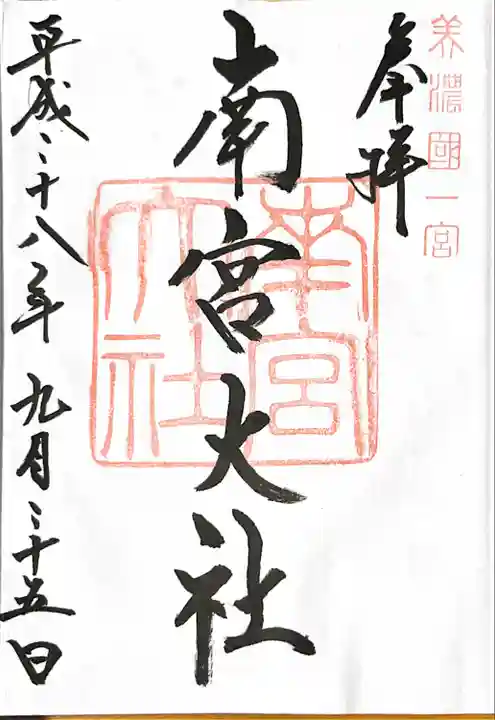 美濃國一宮
奉拝
南宮大社
南宮大社
平成二十八年九月二十五日